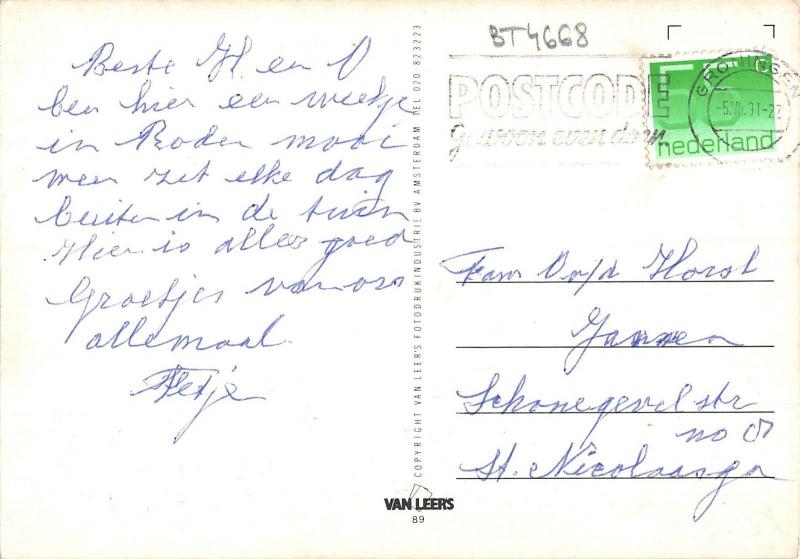 Beste H en O
ben hier een weekje
in Roden mooi
weer zit elke dag
buiten in de tuin
Hier is alles goed
Groetjes van ons
allemaal
Fetje
COPYRIGHT VAN LEER'S FOTODRUKINDUSTRIE BV AMSTERDAM TEL 020 823223
VAN LEER'S
89
BT4668
POSTCODE
gewoon even doen
GRONINGEN
-5.VII.91-22
55
nederland
Fam v/d Horst
Schonegevelstr
no
St. Nicolaasga